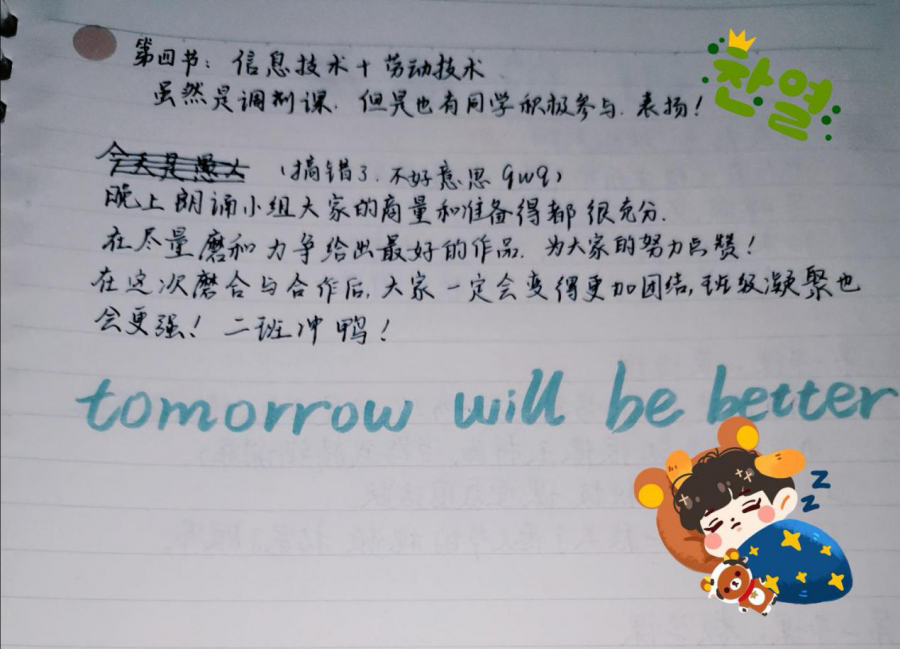 第四节：信息技术+劳动技术
虽然是调剂课，但是也有同学积极参与，表扬！
찬열
今天是愚人
（搞错了，不好意思qwq）
晚上朗诵小组大家的商量和准备得都很充分．
在尽量磨和力争给出最好的作品，为大家的努力点赞！
在这次磨合与合作后，大家一定会变得更加团结，班级凝聚也
会更强！二班冲鸭！
tomorrow will be better
z z